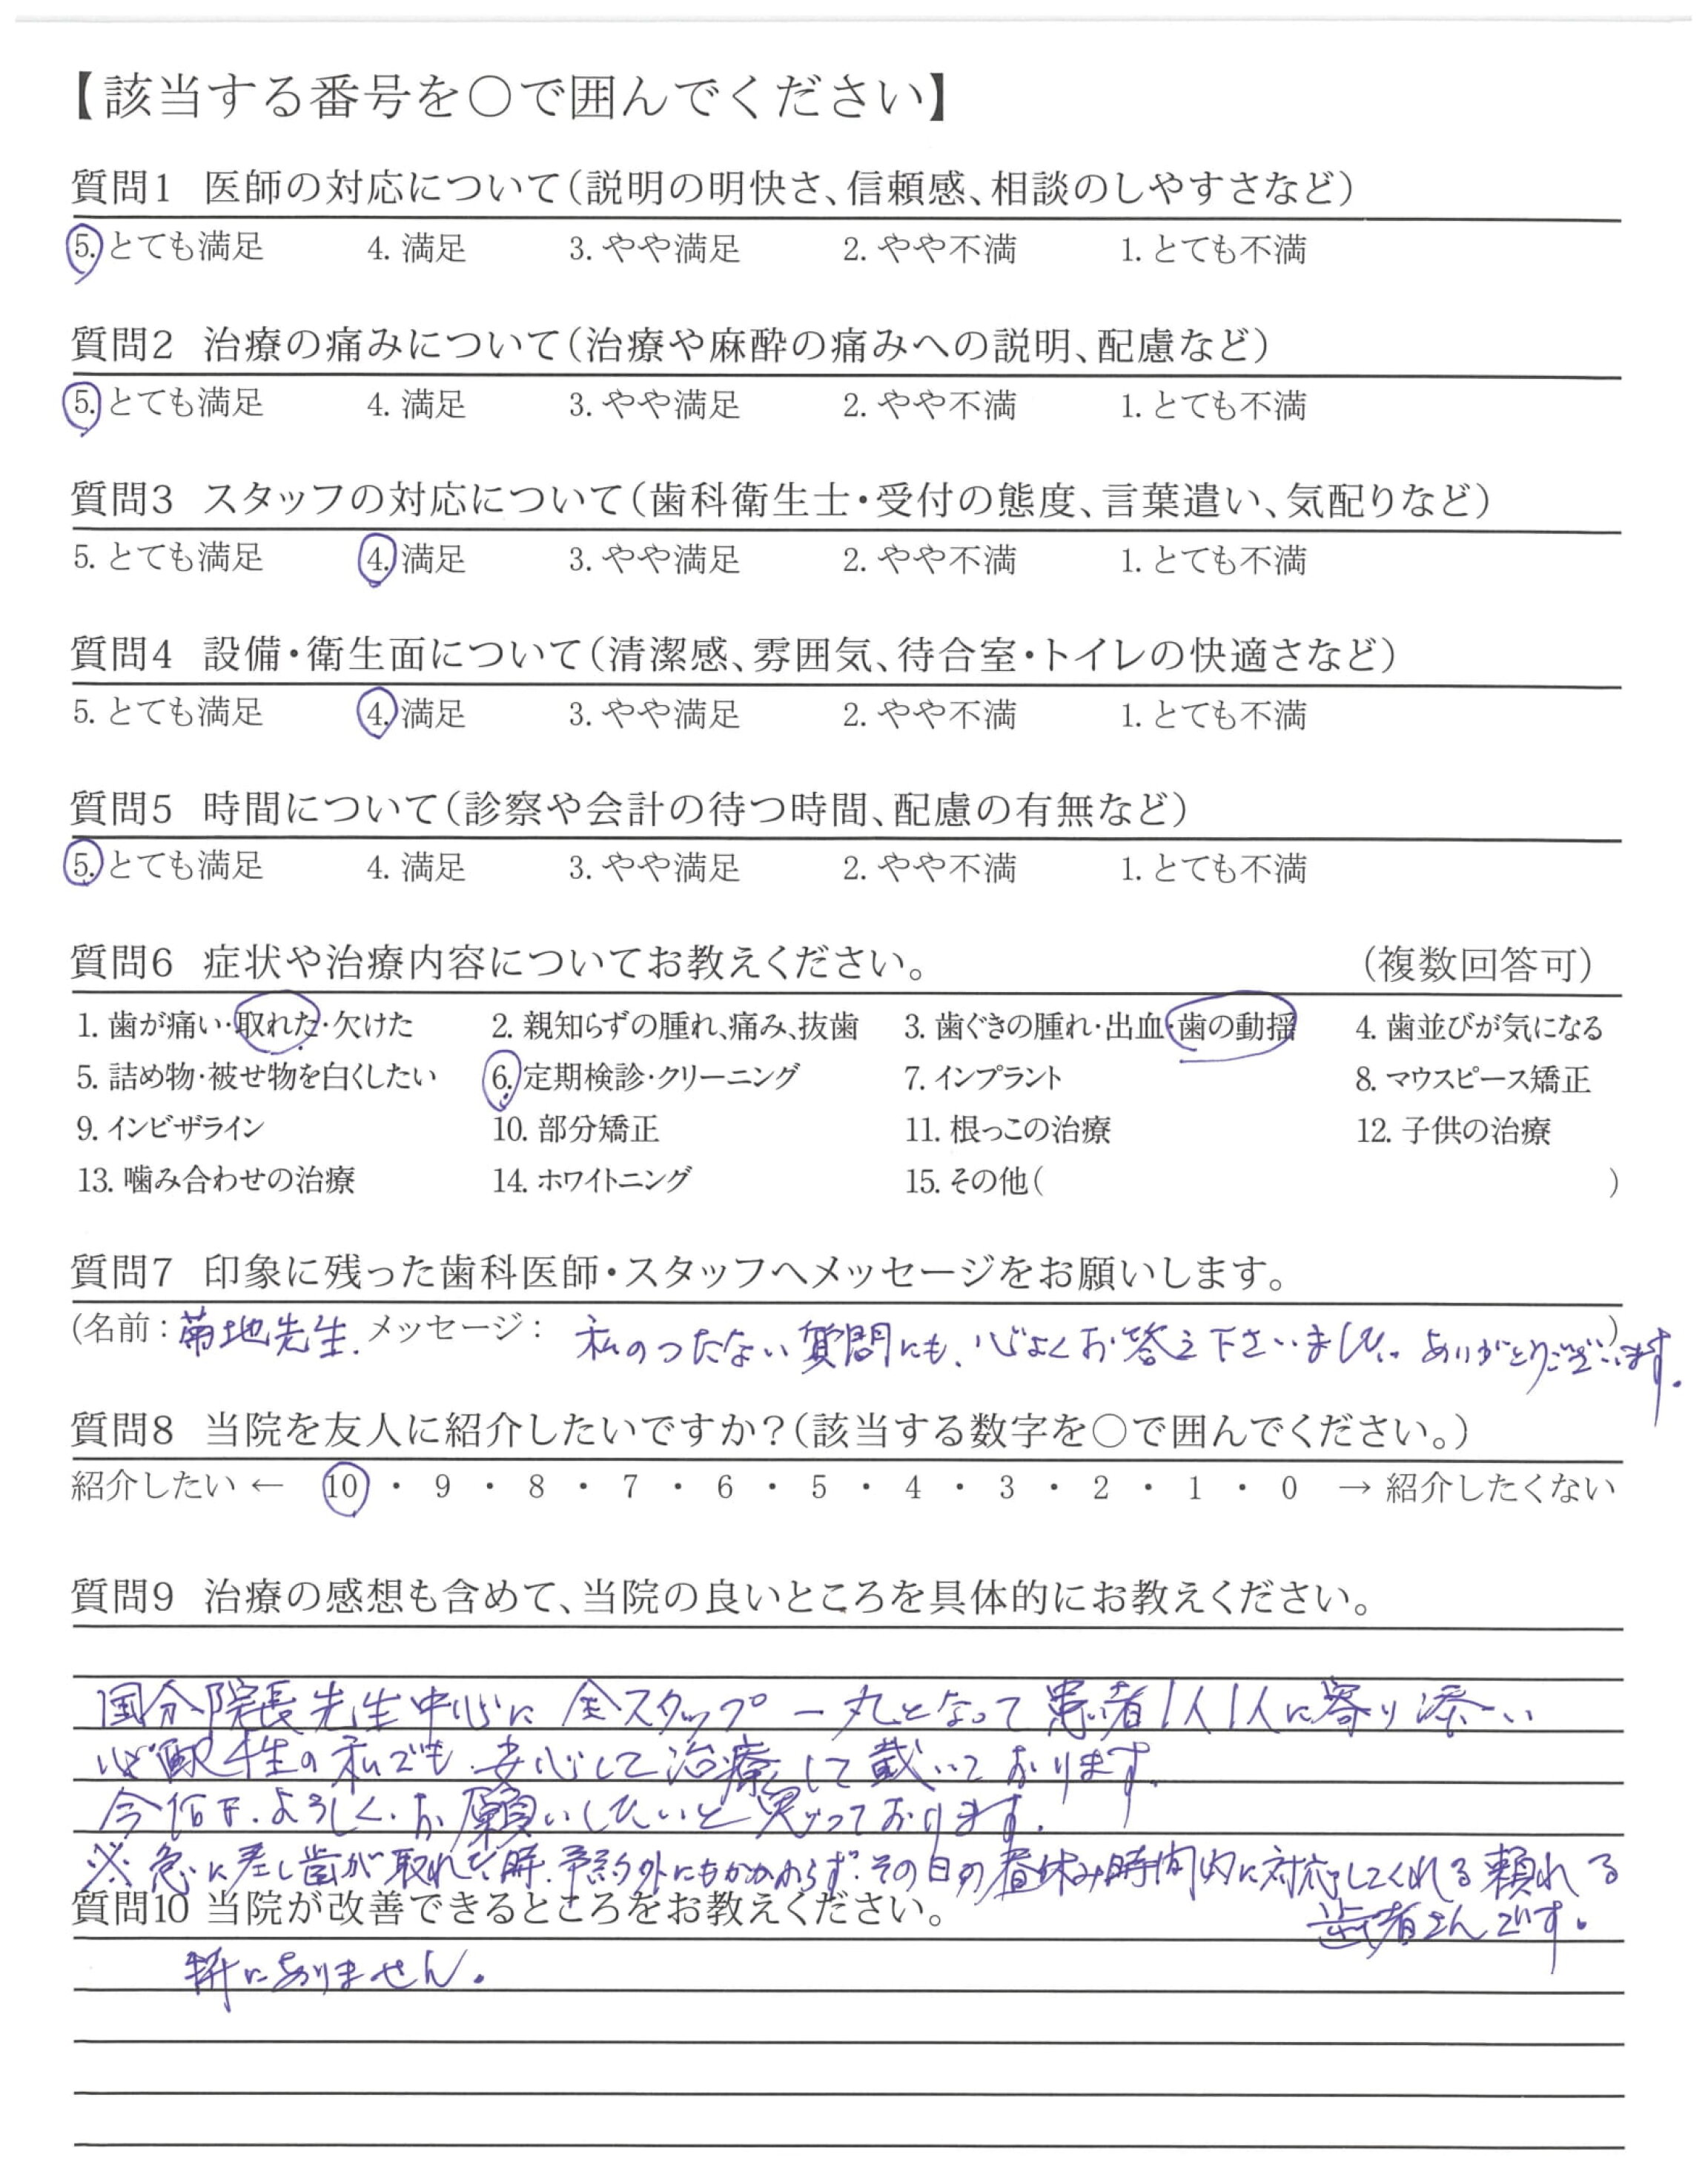 【該当する番号を○で囲んでください】
質問1 医師の対応について(説明の明快さ、信頼感、相談のしやすさなど)
5. とても満足 4. 満足 3. やや満足 2. やや不満 1. とても不満
質問2 治療の痛みについて(治療や麻酔の痛みへの説明、配慮など)
5. とても満足 4. 満足 3. やや満足 2. やや不満 1. とても不満
質問3 スタッフの対応について(歯科衛生士・受付の態度、言葉遣い、気配りなど)
5. とても満足 4. 満足 3. やや満足 2. やや不満 1. とても不満
質問4 設備・衛生面について(清潔感、雰囲気、待合室・トイレの快適さなど)
5. とても満足 4. 満足 3. やや満足 2. やや不満 1. とても不満
質問5 時間について(診察や会計の待つ時間、配慮の有無など)
5. とても満足 4. 満足 3. やや満足 2. やや不満 1. とても不満
質問6 症状や治療内容についてお教えください。 (複数回答可)
1. 歯が痛い・取れた・欠けた 2. 親知らずの腫れ、痛み、抜歯 3. 歯ぐきの腫れ・出血・歯の動揺 4. 歯並びが気になる
5. 詰め物・被せ物を白くしたい 6. 定期検診・クリーニング 7. インプラント 8. マウスピース矯正
9. インビザライン 10. 部分矯正 11. 根っこの治療 12. 子供の治療
13. 噛み合わせの治療 14. ホワイトニング 15. その他( )
質問7 印象に残った歯科医師・スタッフへメッセージをお願いします。
(名前：菊地先生. メッセージ： 私のつたない質問にも、心よくお答え下さいました。ありがとうございます。)
質問8 当院を友人に紹介したいですか?(該当する数字を○で囲んでください。)
紹介したい ← 10 ・ 9 ・ 8 ・ 7 ・ 6 ・ 5 ・ 4 ・ 3 ・ 2 ・ 1 ・ 0 → 紹介したくない
質問9 治療の感想も含めて、当院の良いところを具体的にお教えください。
国分院長先生中心に全スタップ一丸となって患者1人1人に寄り添い
心配性の私でも安心して治療して戴いております。
今后も、よろしくお願いしたいと思っております。
※急に差し歯が取れた時、予約外にもかかわらず、その日の昼休み時間内に対応してくれる頼れる
歯者さんです。
質問10 当院が改善できるところをお教えください。
特にありません。